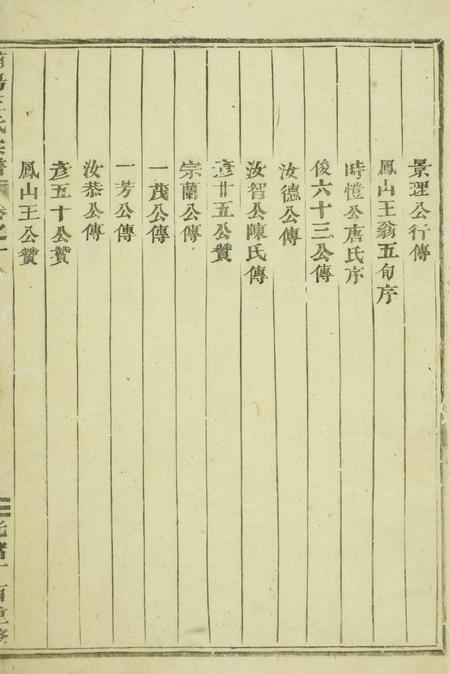 景理公行傳
鳳山王翁五旬序
時愷公唐氏序
俊六十三公傳
汝德公傳
汝智公陳氏傳
彦廿五公贊
宗蘭公傳
一茂公傳
一芳公傳
汝恭公傳
彦五十公贊
鳳山王公贊